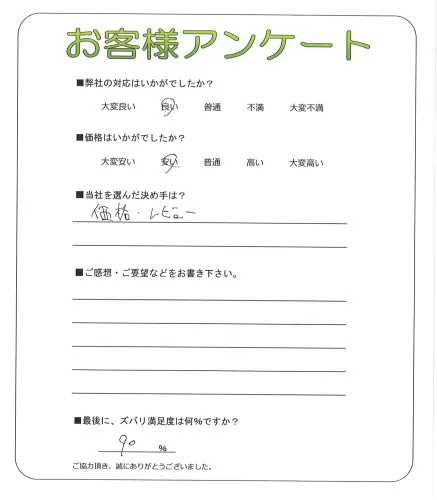 お客様アンケート
■弊社の対応はいかがでしたか？
大変良い 良い 普通 不満 大変不満
■価格はいかがでしたか？
大変安い 安い 普通 高い 大変高い
■当社を選んだ決め手は？
価格・レビュー
■ご感想・ご要望などをお書き下さい。
■最後に、ズバリ満足度は何％ですか？
90 %
ご協力頂き、誠にありがとうございました。